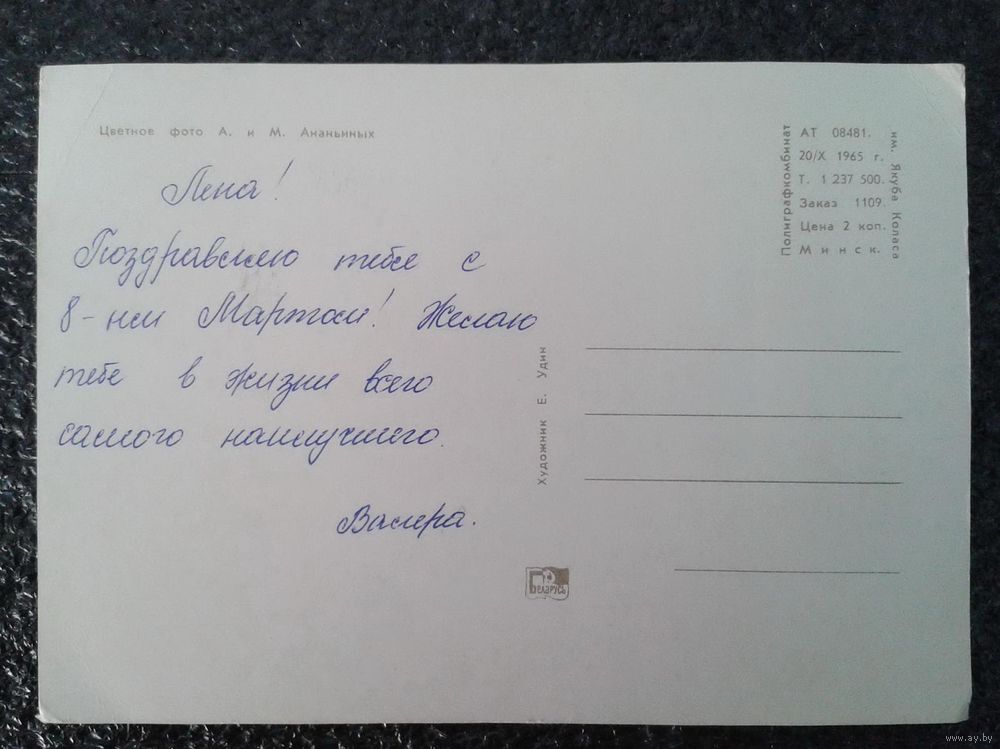 Цветное фото А. и М. Ананьиных
Лена!
Поздравляю тебя с
8-ым Мартом! Желаю
тебе в жизни всего
самого наилучшего.
Валера.
Художник Е. Удин
Беларусь
Полиграфкомбинат
им. Якуба Коласа
АТ 08481.
20/X 1965 г.
Т. 1 237 500.
Заказ 1109.
Цена 2 коп.
Минск.
www.ay.by